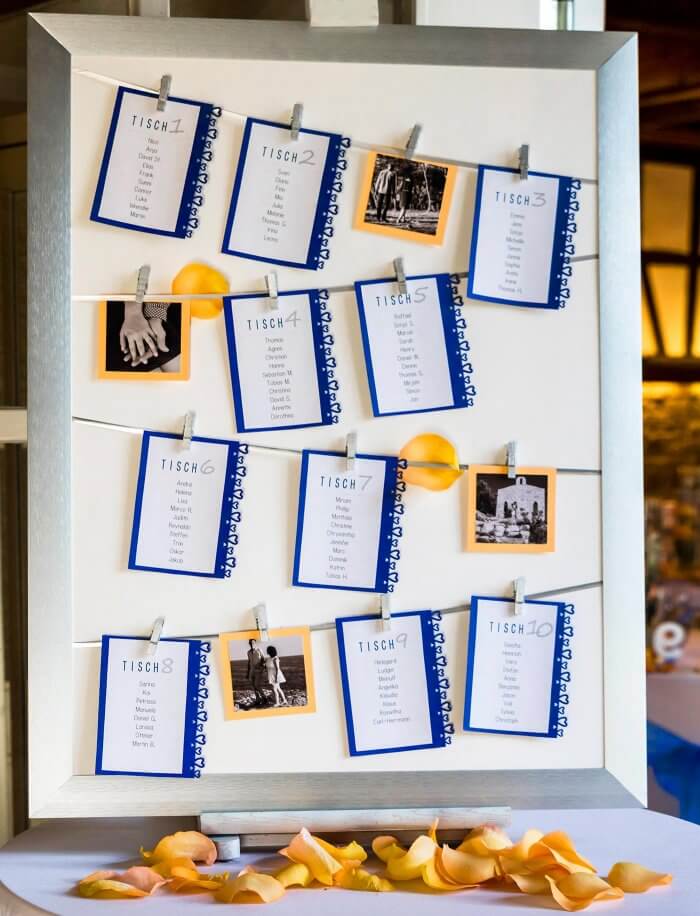 TISCH 1
Nico
Anja
David St.
Elias
Frank
Gunni
Connor
Luke
Wendie
Maron
TISCH 2
Sven
Diana
Finn
Mia
Julia
Melanie
Thomas G.
Irina
Leonie
TISCH 3
Emma
Jens
Sonja
Michelle
Simon
Janna
Sophia
Anita
Irene
Thomas H.
TISCH 4
Thomas
Agnes
Christian
Hanna
Sebastian M.
Tobias M.
Christina
David S.
Annette
Dorothea
TISCH 5
Raffael
Sonja S.
Marcel
Sarah
Henry
Daniel W.
Dennis
Thomas S.
Mirjam
Simon
Jan
TISCH 6
André
Helena
Lisa
Marco R.
Judith
Reynaldo
Steffen
Trixi
Oskar
Jakob
TISCH 7
Miriam
Phillip
Montaha
Christine
Jennifer
Marc
Dominik
Katrin
Tobias H.
TISCH 8
Sarina
Kai
Petrissa
Manuela
Daniel G.
Larissa
Otmar
Martin B.
TISCH 9
Hildegard
Ludger
Meinulf
Angelika
Klaudia
Klaus
Roswitha
Carl-Hermann
TISCH 10
Goetha
Heinrich
Vera
Stefan
Anna
Benjamin
Jason
Willi
Sylvia
Christoph
e